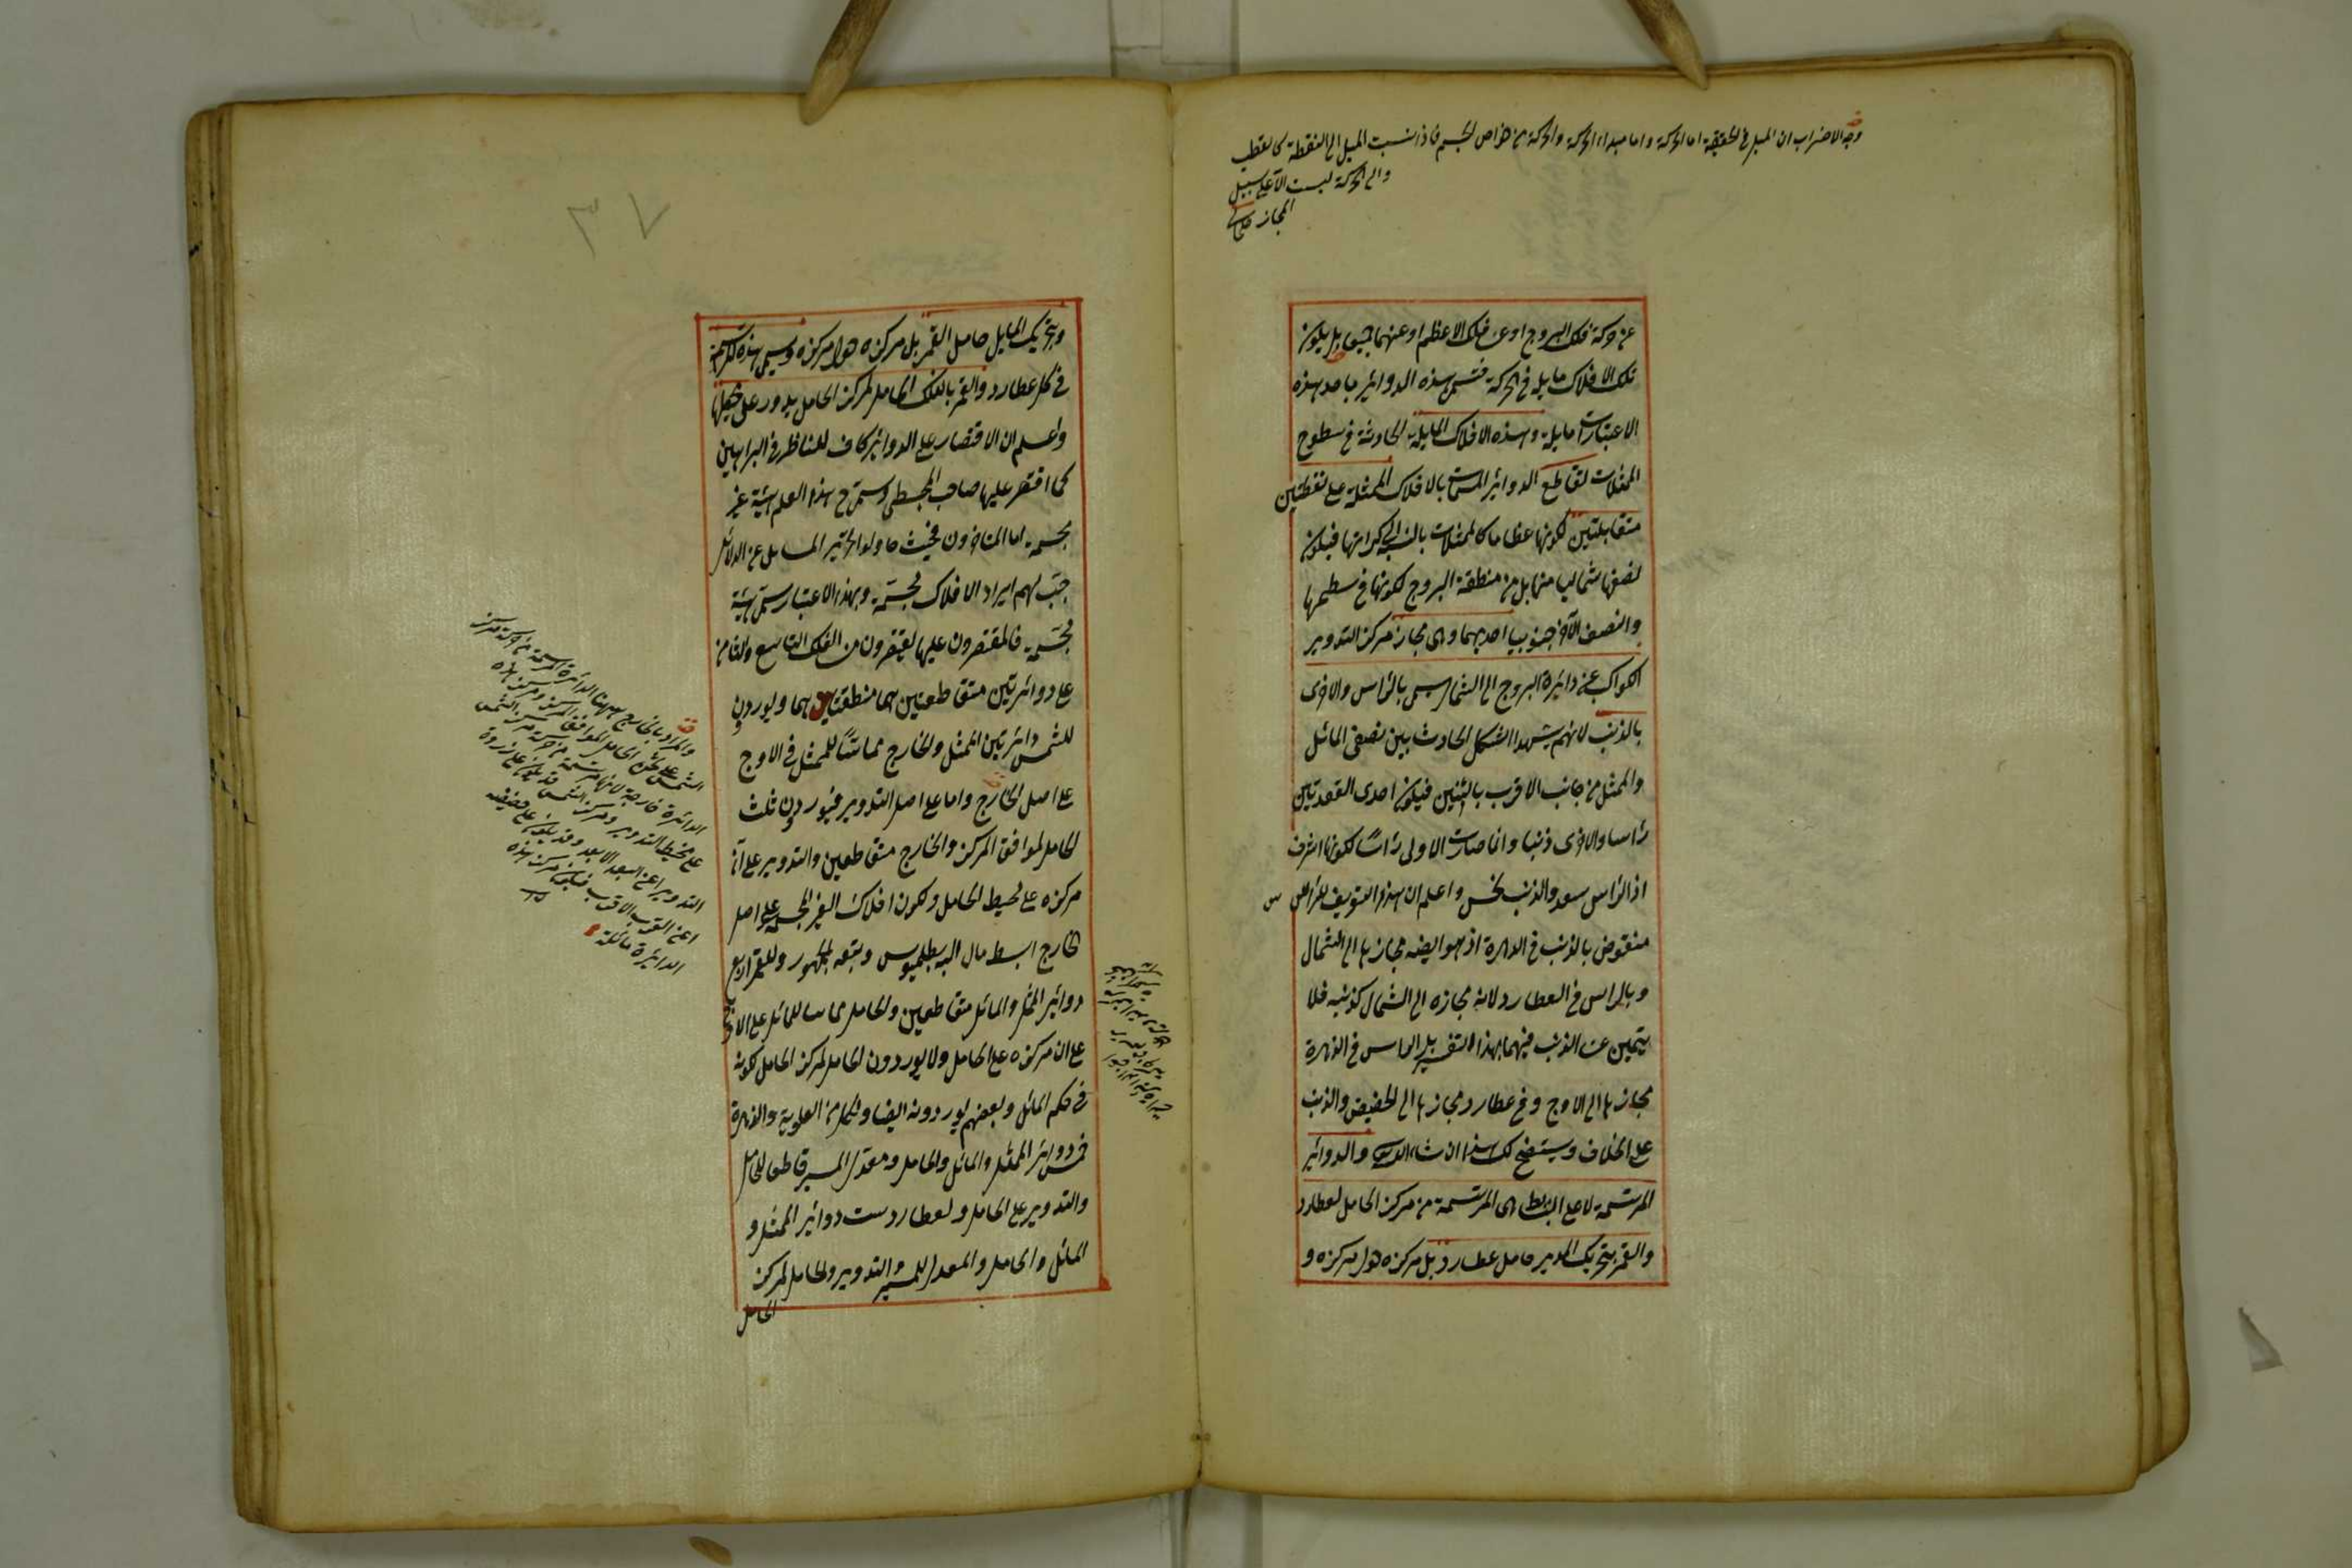 وجه الاضراب ان الميل في الحقيقة اما الحركة واما مبداء الحركة والحركة من خواص الجسم فاذا نسبت الميل الى النقطة كالقطب
والى الحركة ليست الا على سبيل
المجاز
عن حركة فلك البروج او عن فلك الاعظم او عنهما جميعا بل يكون
تلك الافلاك مايلة في الحركة فتسمى هذه الدوائر باحد هذه
الاعتبارات مايلة وهذه الافلاك المايلة الحادثة في سطوح
الممثلات لتقاطع الدوائر المسماة بالافلاك الممثلة على نقطتين
متقابلتين لكونها عظاما كالممثلات بالنسبة الى كراتها فيكون
نصفها شماليا منها بل من منطقة البروج لكونها في سطحها
والنصف الآخر جنوبيا احديهما وهى مجاز مركز التدوير
الكواكب عن دائرة البروج الى الشمال يسمى بالراس والاخرى
بالذنب لانهم شبهوا الشكل الحادث بين نصفى المائل
والممثل من جانب الاقرب بالتنين فيكون احدى العقدتين
رأسا والاخرى ذنبا وانما صارت الاولى رأسا لكونها اشرف
اذ الراس سعد والذنب نحس واعلم ان هذا التعريف للراس
منقوض بالذنب في الزهرة اذ هو ايضه مجازها الى الشمال
وبالراس في العطارد لانه مجازه الى الشمال كذنبه فلا
يتعين عن الذنب فيهما بهذا التفسير بل الراس في الزهرة
مجازها الى الاوج وفي عطارد مجازها الى الحضيض والذنب
على الخلاف وسيتضح لك هذا ان شاء الله والدوائر
المرتسمة لا على البسائط هى المرتسمة من مركز الحامل لعطارد
والقمر بتحريك المدير حامل عطارد بل مركزه حول مركزه و
٣٧
وبتحريك المايل حامل القمر بل مركزه حول مركزه وسيمى هذه
في كل عطارد والقمر بالفلك الحامل لمركز الحامل يدور على محيطها
واعلم ان الاقتصار على الدوائر كاف للناظر في البراهين
كما اقتصر عليها صاحب المجسطى وسمى ح هذا العلم هيئة غير
مجسمة اما المتاخرون فحيث حاولوا تجريد المسايل عن الدلائل
وجب لهم ايراد الافلاك مجسمة وبهذا الاعتبار سمى هيئة
مجسمة فالمقتصرون عليها يقتصرون من الفلك التاسع والثامن
على دوائرتين متقاطعتين هما منطقتاهما ويوردون
للشمس دائرتين الممثل والخارج مماسا للممثل في الاوج
على اصل الخارج واما على اصل التدوير فيوردون ثلث
الحامل الموافق المركز والخارج متقاطعين والتدوير على ان
مركزه على محيط الحامل ولكون افلاك النير المجسمة على اصل
الخارج ابسط مال اليه بطلميوس وتبعه الجمهور وللقمر اربع
دوائر الممثل والمائل متقاطعين والحامل مماسا للمائل على الاوج
على ان مركزه على الحامل ولا يوردون الحامل لمركز الحامل لكونه
في حكم المائل وبعضهم يوردونه ايضا ولكل من العلوية والزهرة
خمس دوائر الممثل والمائل والحامل ومعدل المسير قاطعا للحامل
والتدوير على الحامل ولعطارد ست دوائر الممثل و
المائل والحامل والمعدل للمسير والتدوير والحامل لمركز
الحامل
والمراد بالخارج ههنا الدائرة المرتسمة من حركة مركز
الشمس على محيط الحامل الموافق المركز ومركز هذه
الدائرة خارجة لانها مرتسمة من حركة مركز الشمس
على محيط التدوير ومركز الشمس قد يكون على ذروة
التدوير اعنى البعد الابعد وقد يكون على حضيضه
اعنى القرب الاقرب فيكون مركز هذه
الدائرة مائلة